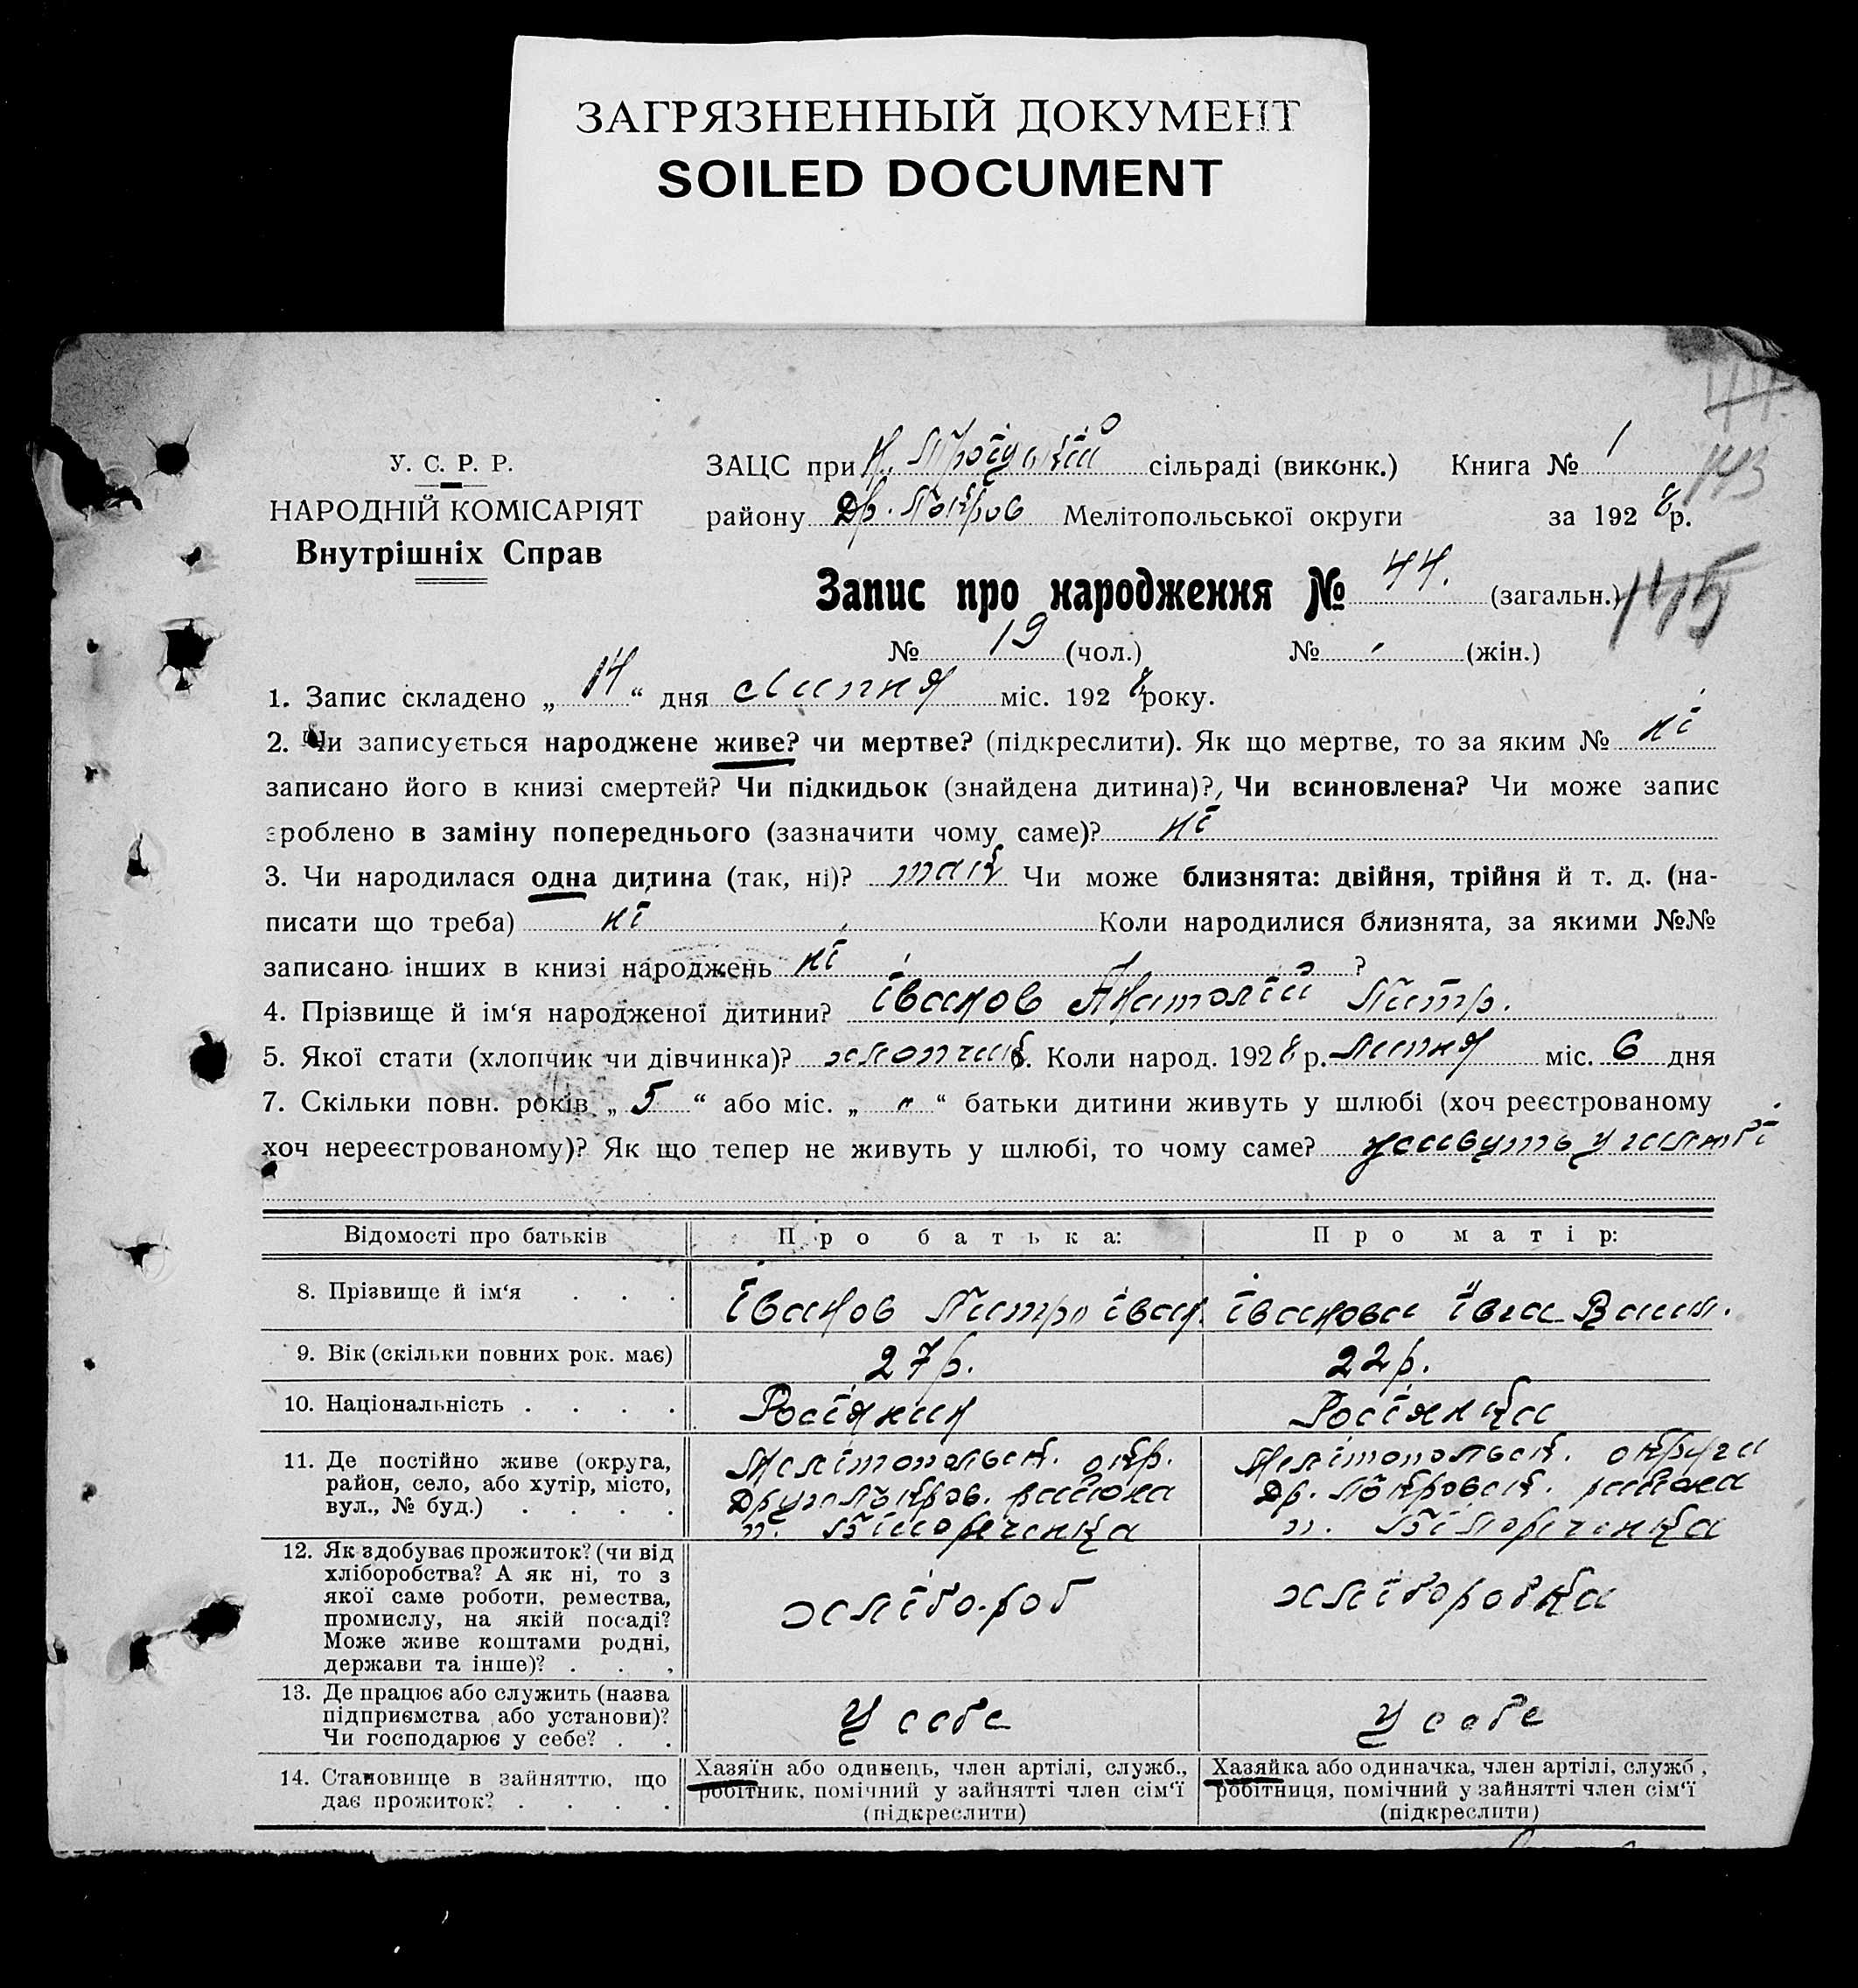 ЗАГРЯЗНЕННЫЙ ДОКУМЕНТ
SOILED DOCUMENT
У. С. Р. Р.
НАРОДНІЙ КОМІСАРІЯТ
Внутрішніх Справ
ЗАЦС при Н. сільраді (виконк.) Книга № 1
143
району Др. Покров Мелітопольської округи за 1928 р.
Запис про народження № 44. (загальн.)
145
№ 19 (чол.) № - (жін.)
1. Запис складено „ 14 “ дня Липня міс. 1928 року.
2. Чи записується народжене живе? чи мертве? (підкреслити). Як що мертве, то за яким № ні
записано його в книзі смертей? Чи підкидьок (знайдена дитина)?, Чи всиновлена? Чи може запис
зроблено в заміну попереднього (зазначити чому саме)? ні
3. Чи народилася одна дитина (так, ні)? так Чи може близнята: двійня, трійня й т. д. (на-
писати що треба) ні Коли народилися близнята, за якими №№
записано інших в книзі народжень ні ?
4. Прізвище й ім‘я народженої дитини? Іванов Анатолій Питр.
5. Якої стати (хлопчик чи дівчинка)? хлопчик. Коли народ. 1928 р. Липня міс. 6 дня
7. Скільки повн. років „ 5 “ або міс. „ " “ батьки дитини живуть у шлюбі (хоч реєстрованому
хоч нереєстрованому)? Як що тепер не живуть у шлюбі, то чому саме? живуть у шлюбі
Відомості про батьків Про батька: Про матір:
8. Прізвище й ім‘я . . . Іванов Питро Іван. Іванова Ївга Васил.
9. Вік (скільки повних рок. має) 27 р. 22 р.
10. Національність . . . . Росіянин Росіянка
11. Де постійно живе (округа, район, село, або хутір, місто, вул., № буд.) . . . .
Мелітопольск. окр.
Другопокров. района
п. Білореченка
Мелітопольск. округи
Др. Покровск. района
п. Білореченка
12. Як здобуває прожиток? (чи від
хліборобства? А як ні, то з
якої саме роботи, ремества,
промислу, на якій посаді?
Може живе коштами родні,
держави та інше)? . . .
хлібо-роб хліборобка
13. Де працює або служить (назва
підприємства або установи)?
Чи господарює у себе? . .
У себе У себе
14. Становище в зайняттю, що
дає прожиток? . . . .
Хазяїн або одинець, член артілі, служб.,
робітник, помічний у зайнятті член сім‘ї
(підкреслити)
Хазяйка або одиначка, член артілі, служб.,
робітниця, помічний у зайнятті член сім‘ї
(підкреслити)